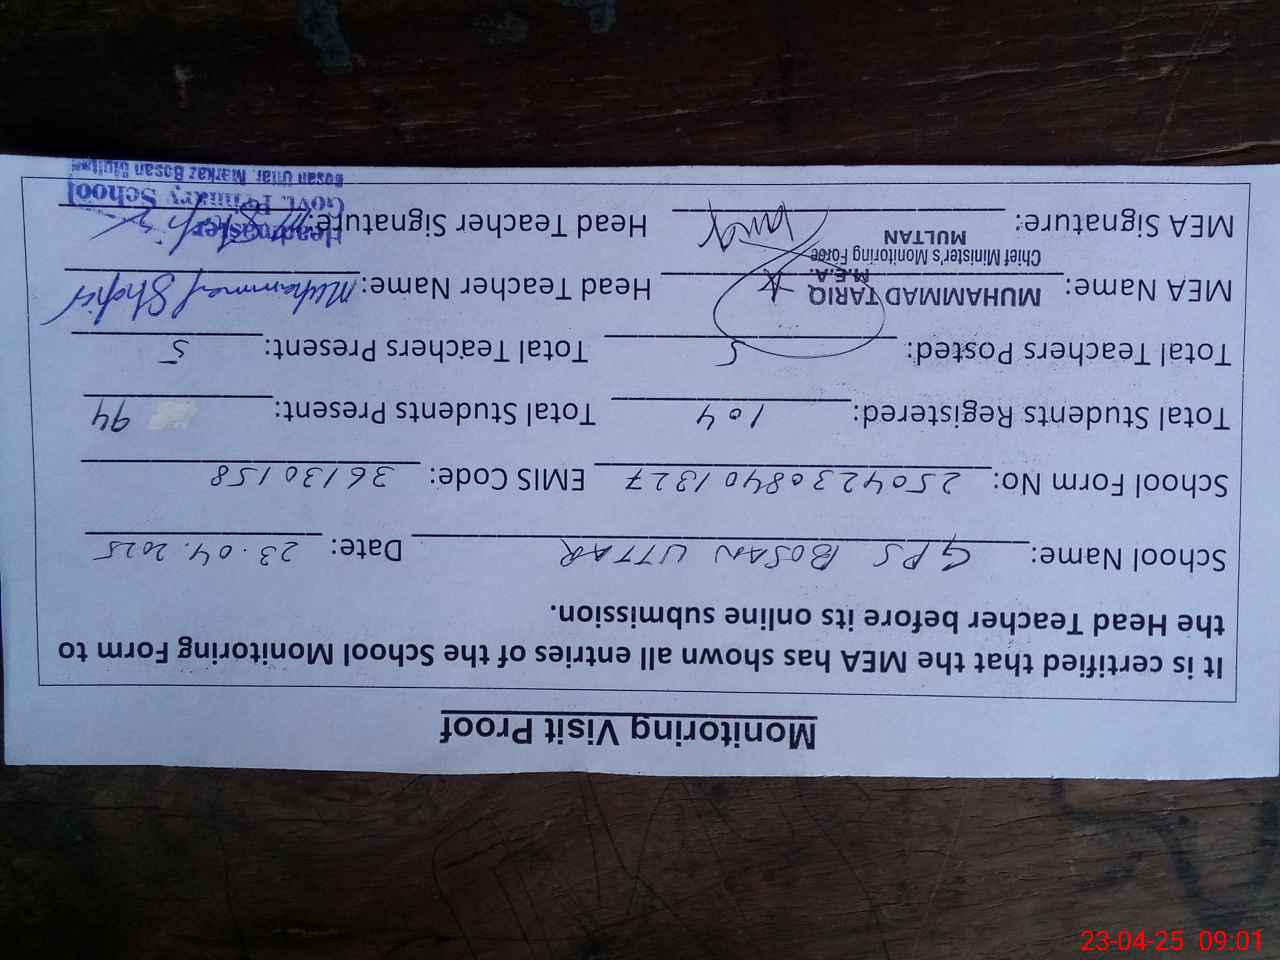 Monitoring Visit Proof
It is certified that the MEA has shown all entries of the School Monitoring Form to
the Head Teacher before its online submission.
School Name: GPS BOSAN UTTAR Date: 23.04.2025
School Form No: 25042308401327 EMIS Code: 36130158
Total Students Registered: 104 Total Students Present: 94
Total Teachers Posted: 5 Total Teachers Present: 5
MEA Name: MUHAMMAD TARIQ Head Teacher Name: Muhammad Shafiq
M.E.A.
Chief Minister's Monitoring Force
MULTAN
MEA Signature: Head Teacher Signature:
Headmaster
Govt. Primary School
Bosan Uttar, Markaz Bosan Multan
23-04-25 09:01